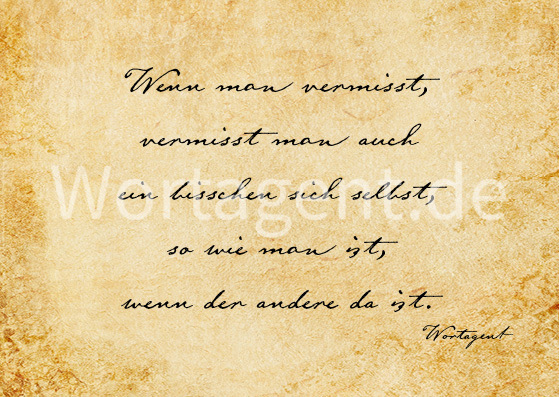 Wenn man vermisst,
vermisst man auch
ein bisschen sich selbst,
Wortagent.de
so wie man ist,
wenn der andere da ist.
Wortagent